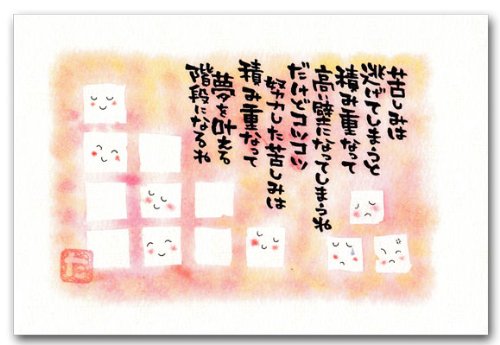 苦しみは
逃げてしまうと
積み重なって
高い壁になってしまうね
だけどコツコツ
努力した苦しみは
積み重なって
夢を叶える
階段になるね
だ